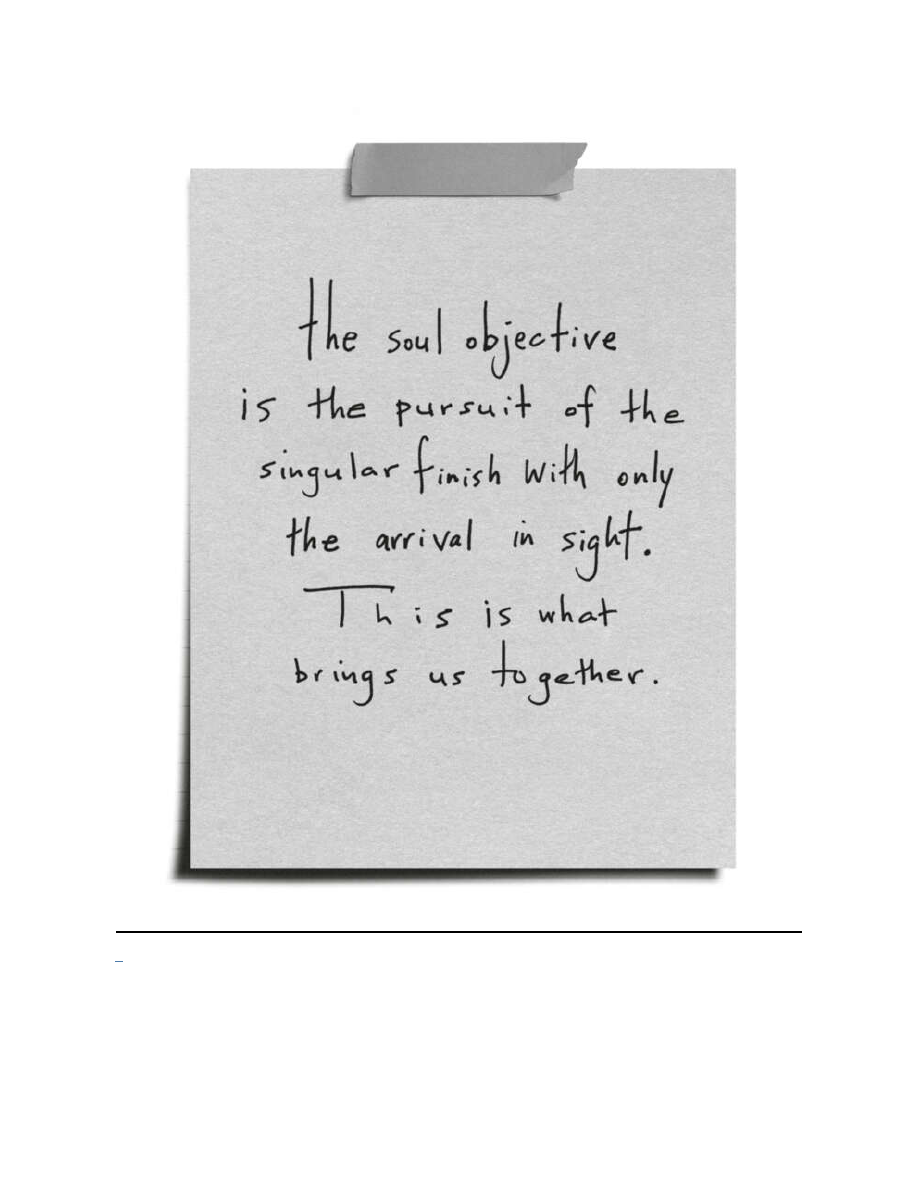 the soul objective
is the pursuit of the
singular finish with only
the arrival in sight.
This is what
brings us together.